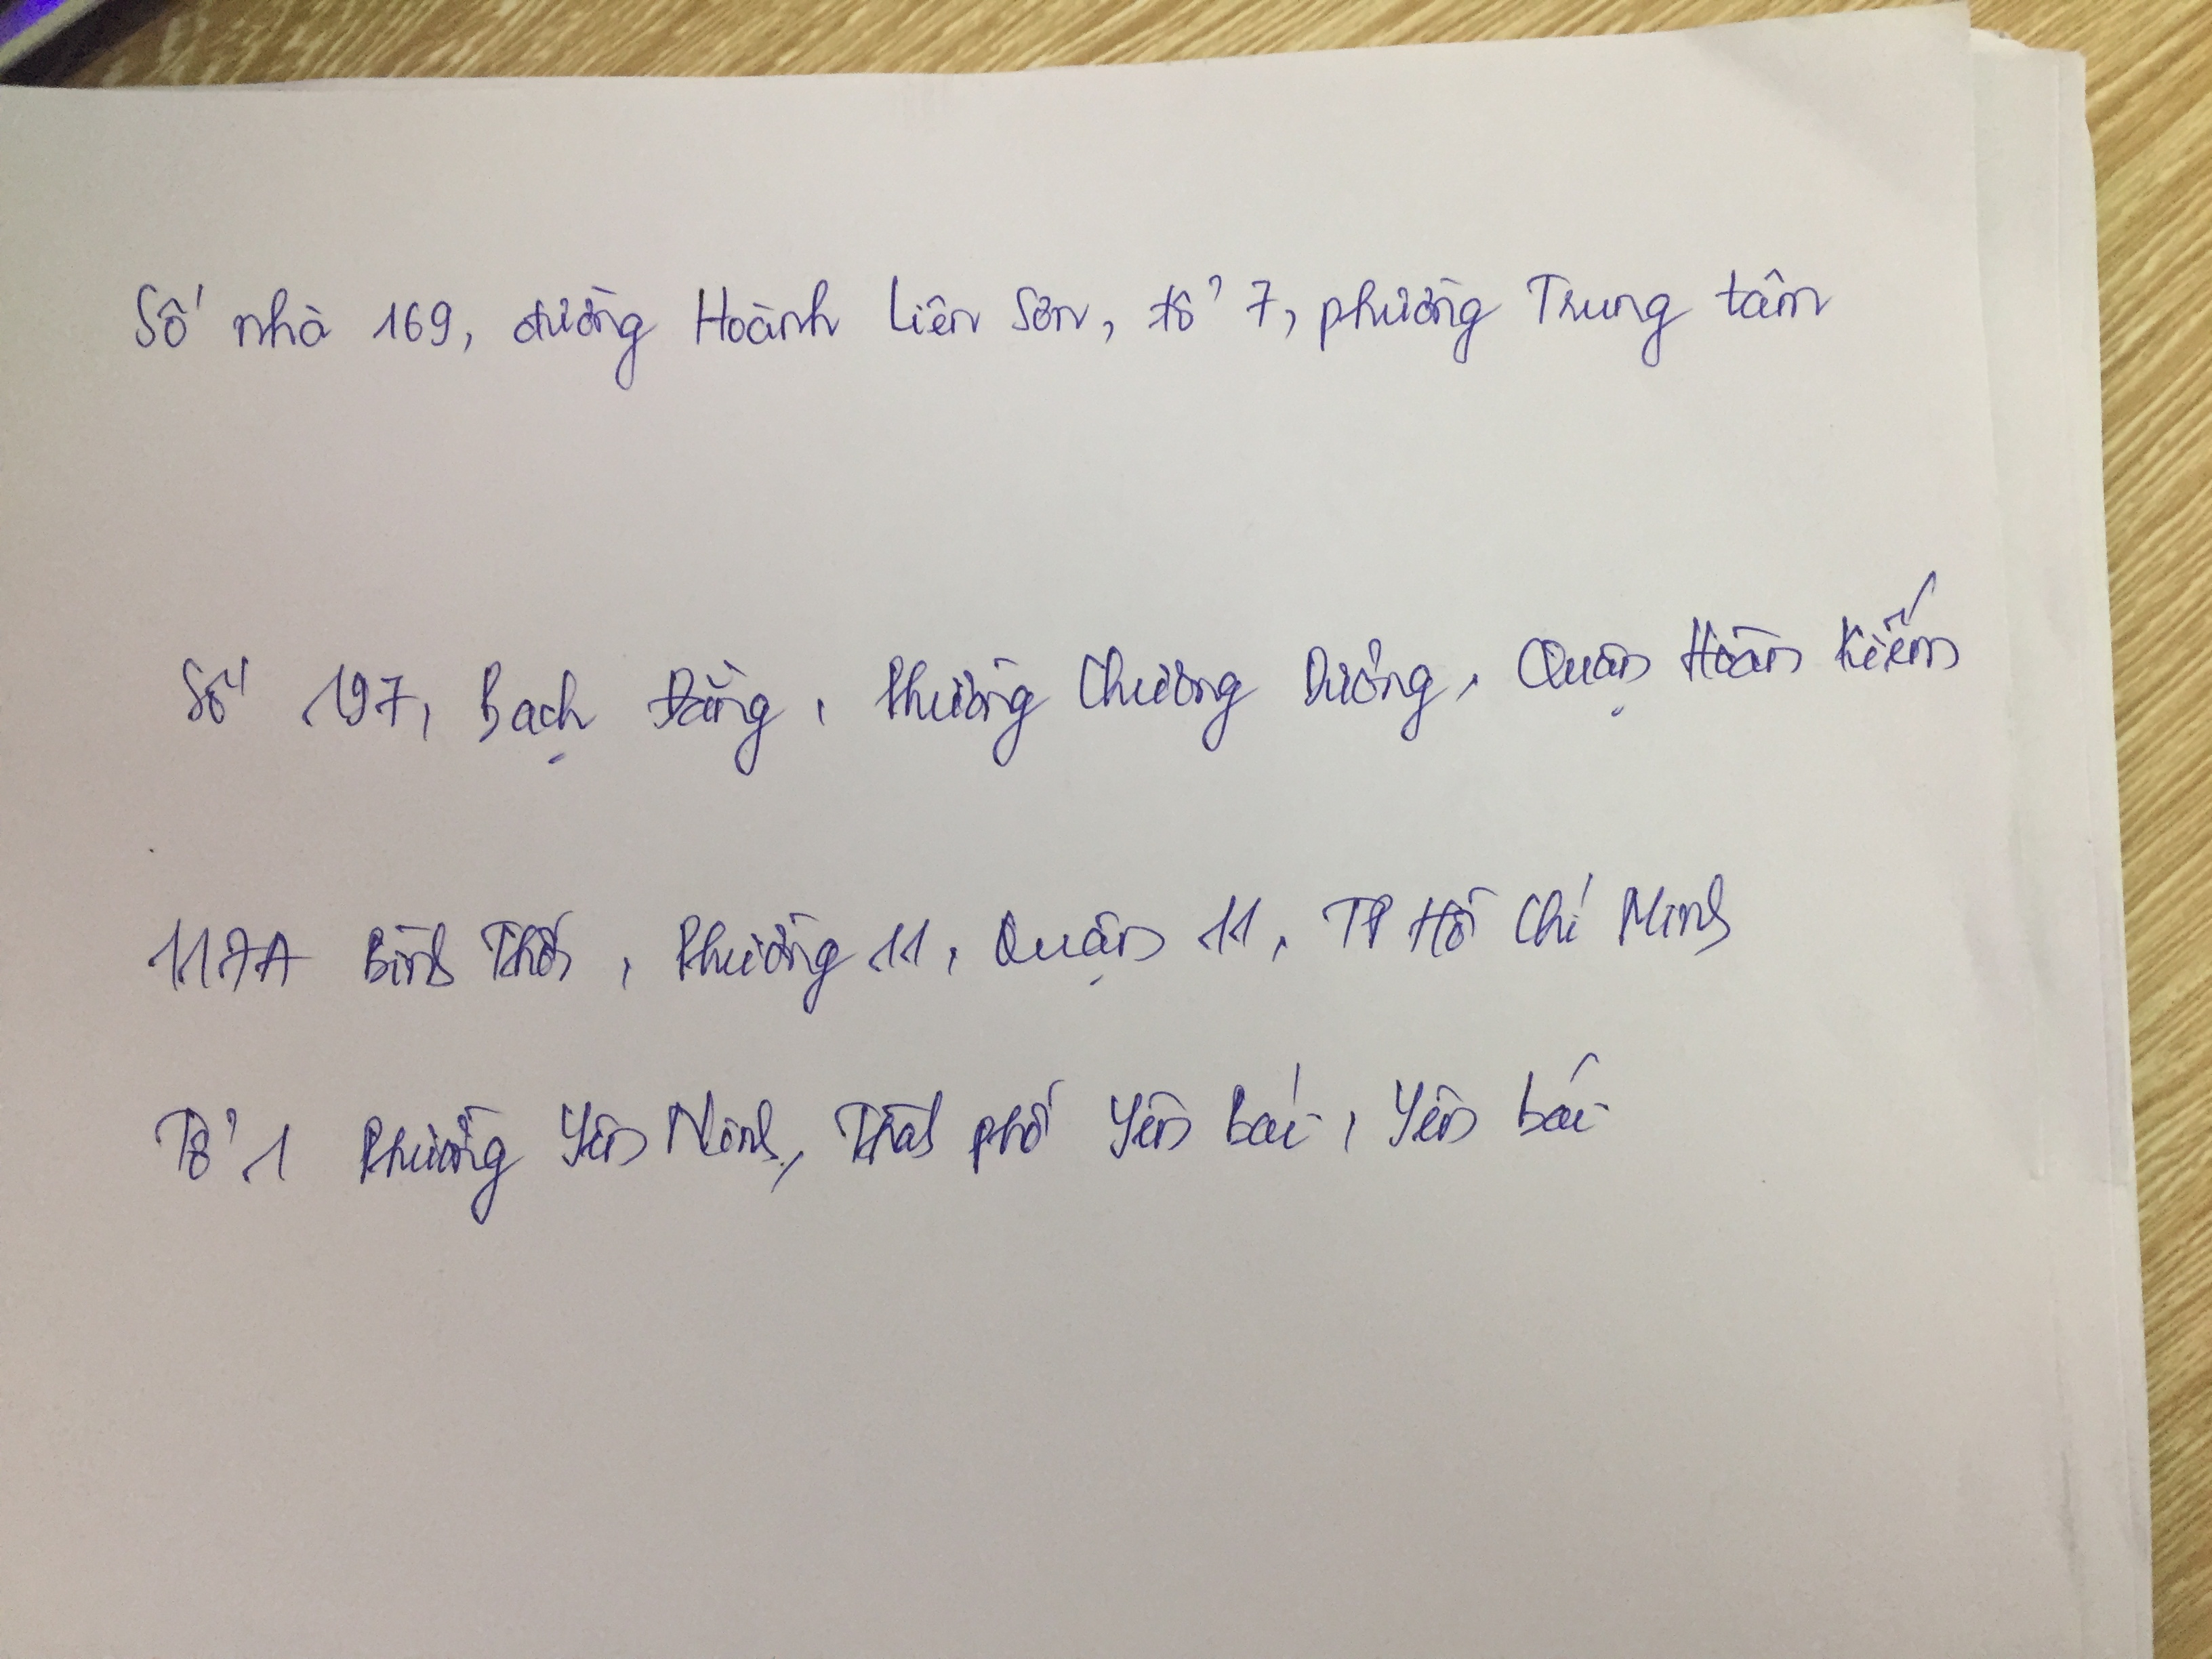 Số nhà 169, đường Hoành Liên Sơn, tổ 7, phường Trung tâm
Số 197, Bạch Đằng, Phường Chương Dương, Quận Hoàn Kiếm
117A Bình Thới, Phường 11, Quận 11, TP Hồ Chí Minh
Tổ 1 Phường Yên Ninh, Thành phố Yên Bái, Yên Bái